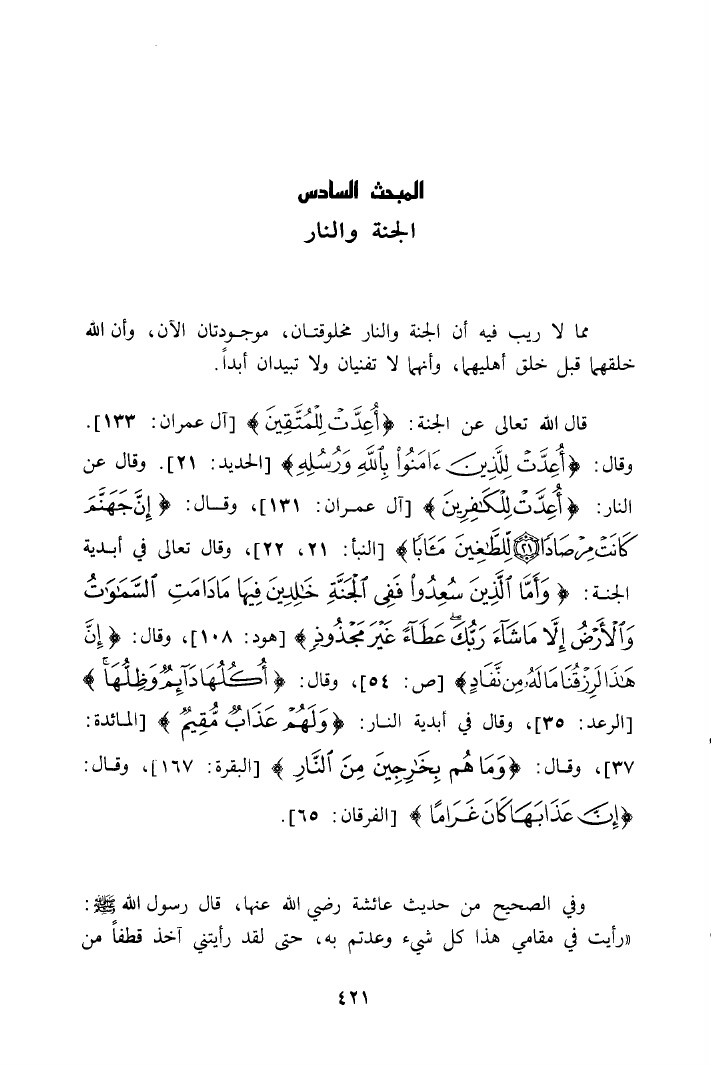 المبحث السادس
الجنة والنار
مما لا ريب فيه أن الجنة والنار مخلوقتان، موجودتان الآن، وأن الله
خلقهما قبل خلق أهليهما، وأنهما لا تفنيان ولا تبيدان أبداً.
قال الله تعالى عن الجنة: ﴿أُعِدَّتْ لِلْمُتَّقِينَ﴾ [آل عمران: ١٣٣].
وقال: ﴿أُعِدَّتْ لِلَّذِينَ ءَامَنُواْ بِٱللَّهِ وَرُسُلِهِ﴾ [الحديد: ٢١]. وقال عن
النار: ﴿أُعِدَّتْ لِلْكَٰفِرِينَ﴾ [آل عمران: ١٣١]، وقال: ﴿إِنَّ جَهَنَّمَ
كَانَتْ مِرْصَادًا ﴿٢١﴾ لِّلطَّٰغِينَ مَـَٔابًا﴾ [النبأ: ٢١، ٢٢]، وقال تعالى في أبدية
الجنة: ﴿وَأَمَّا ٱلَّذِينَ سُعِدُواْ فَفِى ٱلْجَنَّةِ خَٰلِدِينَ فِيهَا مَادَامَتِ ٱلسَّمَٰوَٰتُ
وَٱلْأَرْضُ إِلَّا مَاشَآءَ رَبُّكَۖ عَطَآءً غَيْرَ مَجْذُوذٍ﴾ [هود: ١٠٨]، وقال: ﴿إِنَّ
هَٰذَا لَرِزْقُنَا مَالَهُۥ مِن نَّفَادٍ﴾ [ص: ٥٤]، وقال: ﴿أُكُلُهَا دَآئِمٌ وَظِلُّهَاۚ﴾
[الرعد: ٣٥]، وقال في أبدية النار: ﴿وَلَهُمْ عَذَابٌ مُّقِيمٌ﴾ [المائدة:
٣٧]، وقال: ﴿وَمَا هُم بِخَٰرِجِينَ مِنَ ٱلنَّارِ﴾ [البقرة: ١٦٧]، وقال:
﴿إِنَّ عَذَابَهَا كَانَ غَرَامًا﴾ [الفرقان: ٦٥].
وفي الصحيح من حديث عائشة رضي الله عنها، قال رسول الله ﷺ:
«رأيت في مقامي هذا كل شيء وعدتم به، حتى لقد رأيتني آخذ قطفاً من
٤٢١